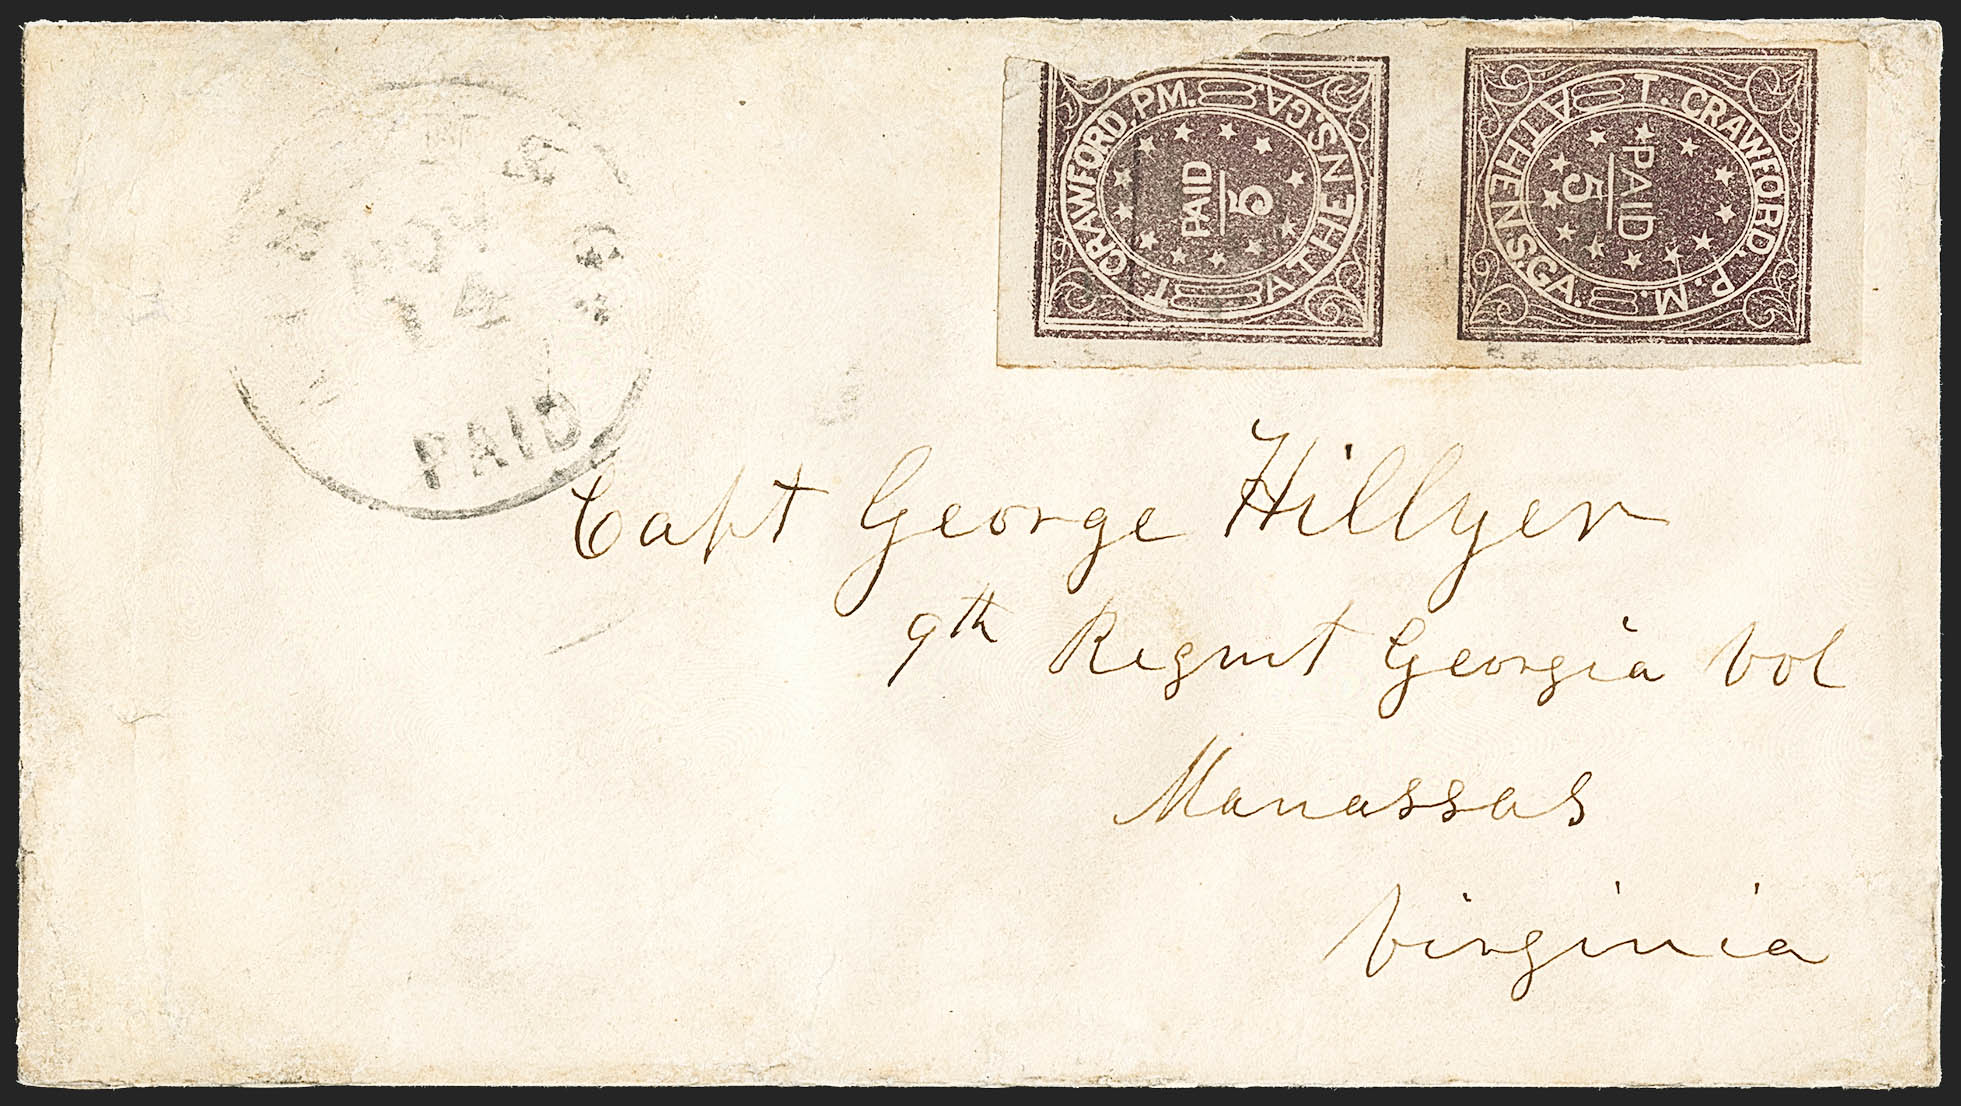 T. CRAWFORD, P.M.
ATHENS, GA.
PAID
5
T. CRAWFORD, P.M.
ATHENS, GA.
PAID
5
14
PAID
Capt George Hillyer
9th Regmt Georgia Vol
Manassas
Virginia